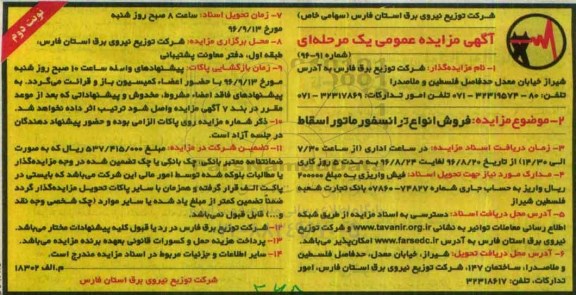 نوبت دوم
شرکت توزیع نیروی برق استان فارس (سهامی خاص)
آگهی مزایده عمومی یک مرحله‌ای
(شماره ۹۱-۹۶)
۱- نام مزایده‌گذار: شرکت توزیع برق فارس به آدرس
شیراز خیابان معدل حدفاصل فلسطین و ملاصدرا
تلفن: ۸۰ - ۳۲۳۱۹۵۷۴ - ۰۷۱ تلفن امور تدارکات: ۳۲۳۱۷۸۶۹ - ۰۷۱
۲- موضوع مزایده: فروش انواع ترانسفورماتور اسقاط
۳- زمان دریافت اسناد مزایده: در ساعت اداری (از ساعت ۷/۳۰
الی ۱۴/۳۰) از تاریخ ۹۶/۸/۲۰ لغایت ۹۶/۸/۲۴ به مدت ۵ روز کاری
۴- مدارک مورد نیاز جهت تحویل اسناد: فیش واریزی به مبلغ ۳۰۰۰۰۰
ریال واریز به حساب جاری شماره ۷۴۸۲۷-۰۷۸۶۰ بانک تجارت شعبه
فلسطین شیراز
۵- آدرس محل دریافت اسناد: دسترسی به اسناد مزایده از طریق شبکه
اطلاع رسانی معاملات توانیر به نشانی www.tavanir.org.ir و شرکت توزیع
نیروی برق استان فارس به آدرس www.farsedc.ir امکان‌پذیر می‌باشد.
۶- آدرس محل دریافت تحویل: شیراز، خیابان معدل، حدفاصل فلسطین
و ملاصدرا، ساختمان ۱۴۷، شرکت توزیع نیروی برق استان فارس، امور
تدارکات، تلفن: ۳۲۳۱۸۶۱۷
۷- زمان تحویل اسناد: ساعت ۸ صبح روز شنبه
مورخ ۹۶/۹/۱۳
۸- محل برگزاری مزایده: شرکت توزیع نیروی برق استان فارس،
طبقه اول، دفتر معاونت پشتیبانی
۹- زمان بازگشایی پاکات: پیشنهادهای واصله ساعت ۱۰ صبح روز شنبه
مورخ ۹۶/۹/۱۳ با حضور اعضاء کمیسیون باز و قرائت می‌گردد. به
پیشنهادهای فاقد امضاء، مشروط، مخدوش و پیشنهاداتی که بعد از موعد
مقرر در بند ۷ آگهی مزایده واصل شود ترتیب اثر داده نخواهد شد.
۱۰- ذکر شماره مزایده روی پاکات الزامی بوده و حضور پیشنهاد دهندگان
در جلسه آزاد است.
۱۱- تضمین شرکت در مزایده: مبلغ ۵۳۷/۴۱۵/۰۰۰ ریال که به صورت
ضمانتنامه معتبر بانکی، چک بانکی یا چک تضمین شده در وجه مزایده‌گذار
یا مطالبات بلوکه شده توسط امور مالی این شرکت می‌باشد که بایستی در
پاکت الف قرار گرفته و همزمان با سایر پاکات تحویل مزایده‌گذار گردد
ضمناً تضمین کمتر از مبلغ یاد شده یا سایر موارد (چک شخصی وجه نقد
و...) قابل قبول نمی‌باشد.
۱۲- شرکت توزیع برق فارس در رد یا قبول کلیه پیشنهادات مختار می‌باشد.
۱۳- پرداخت هزینه حمل و کسورات قانونی بعهده برنده مزایده می‌باشد.
۱۴- سایر اطلاعات و جزئیات مربوط در اسناد مزایده مندرج است.
م.الف ۱۸۳۰۲
شرکت توزیع نیروی برق استان فارس